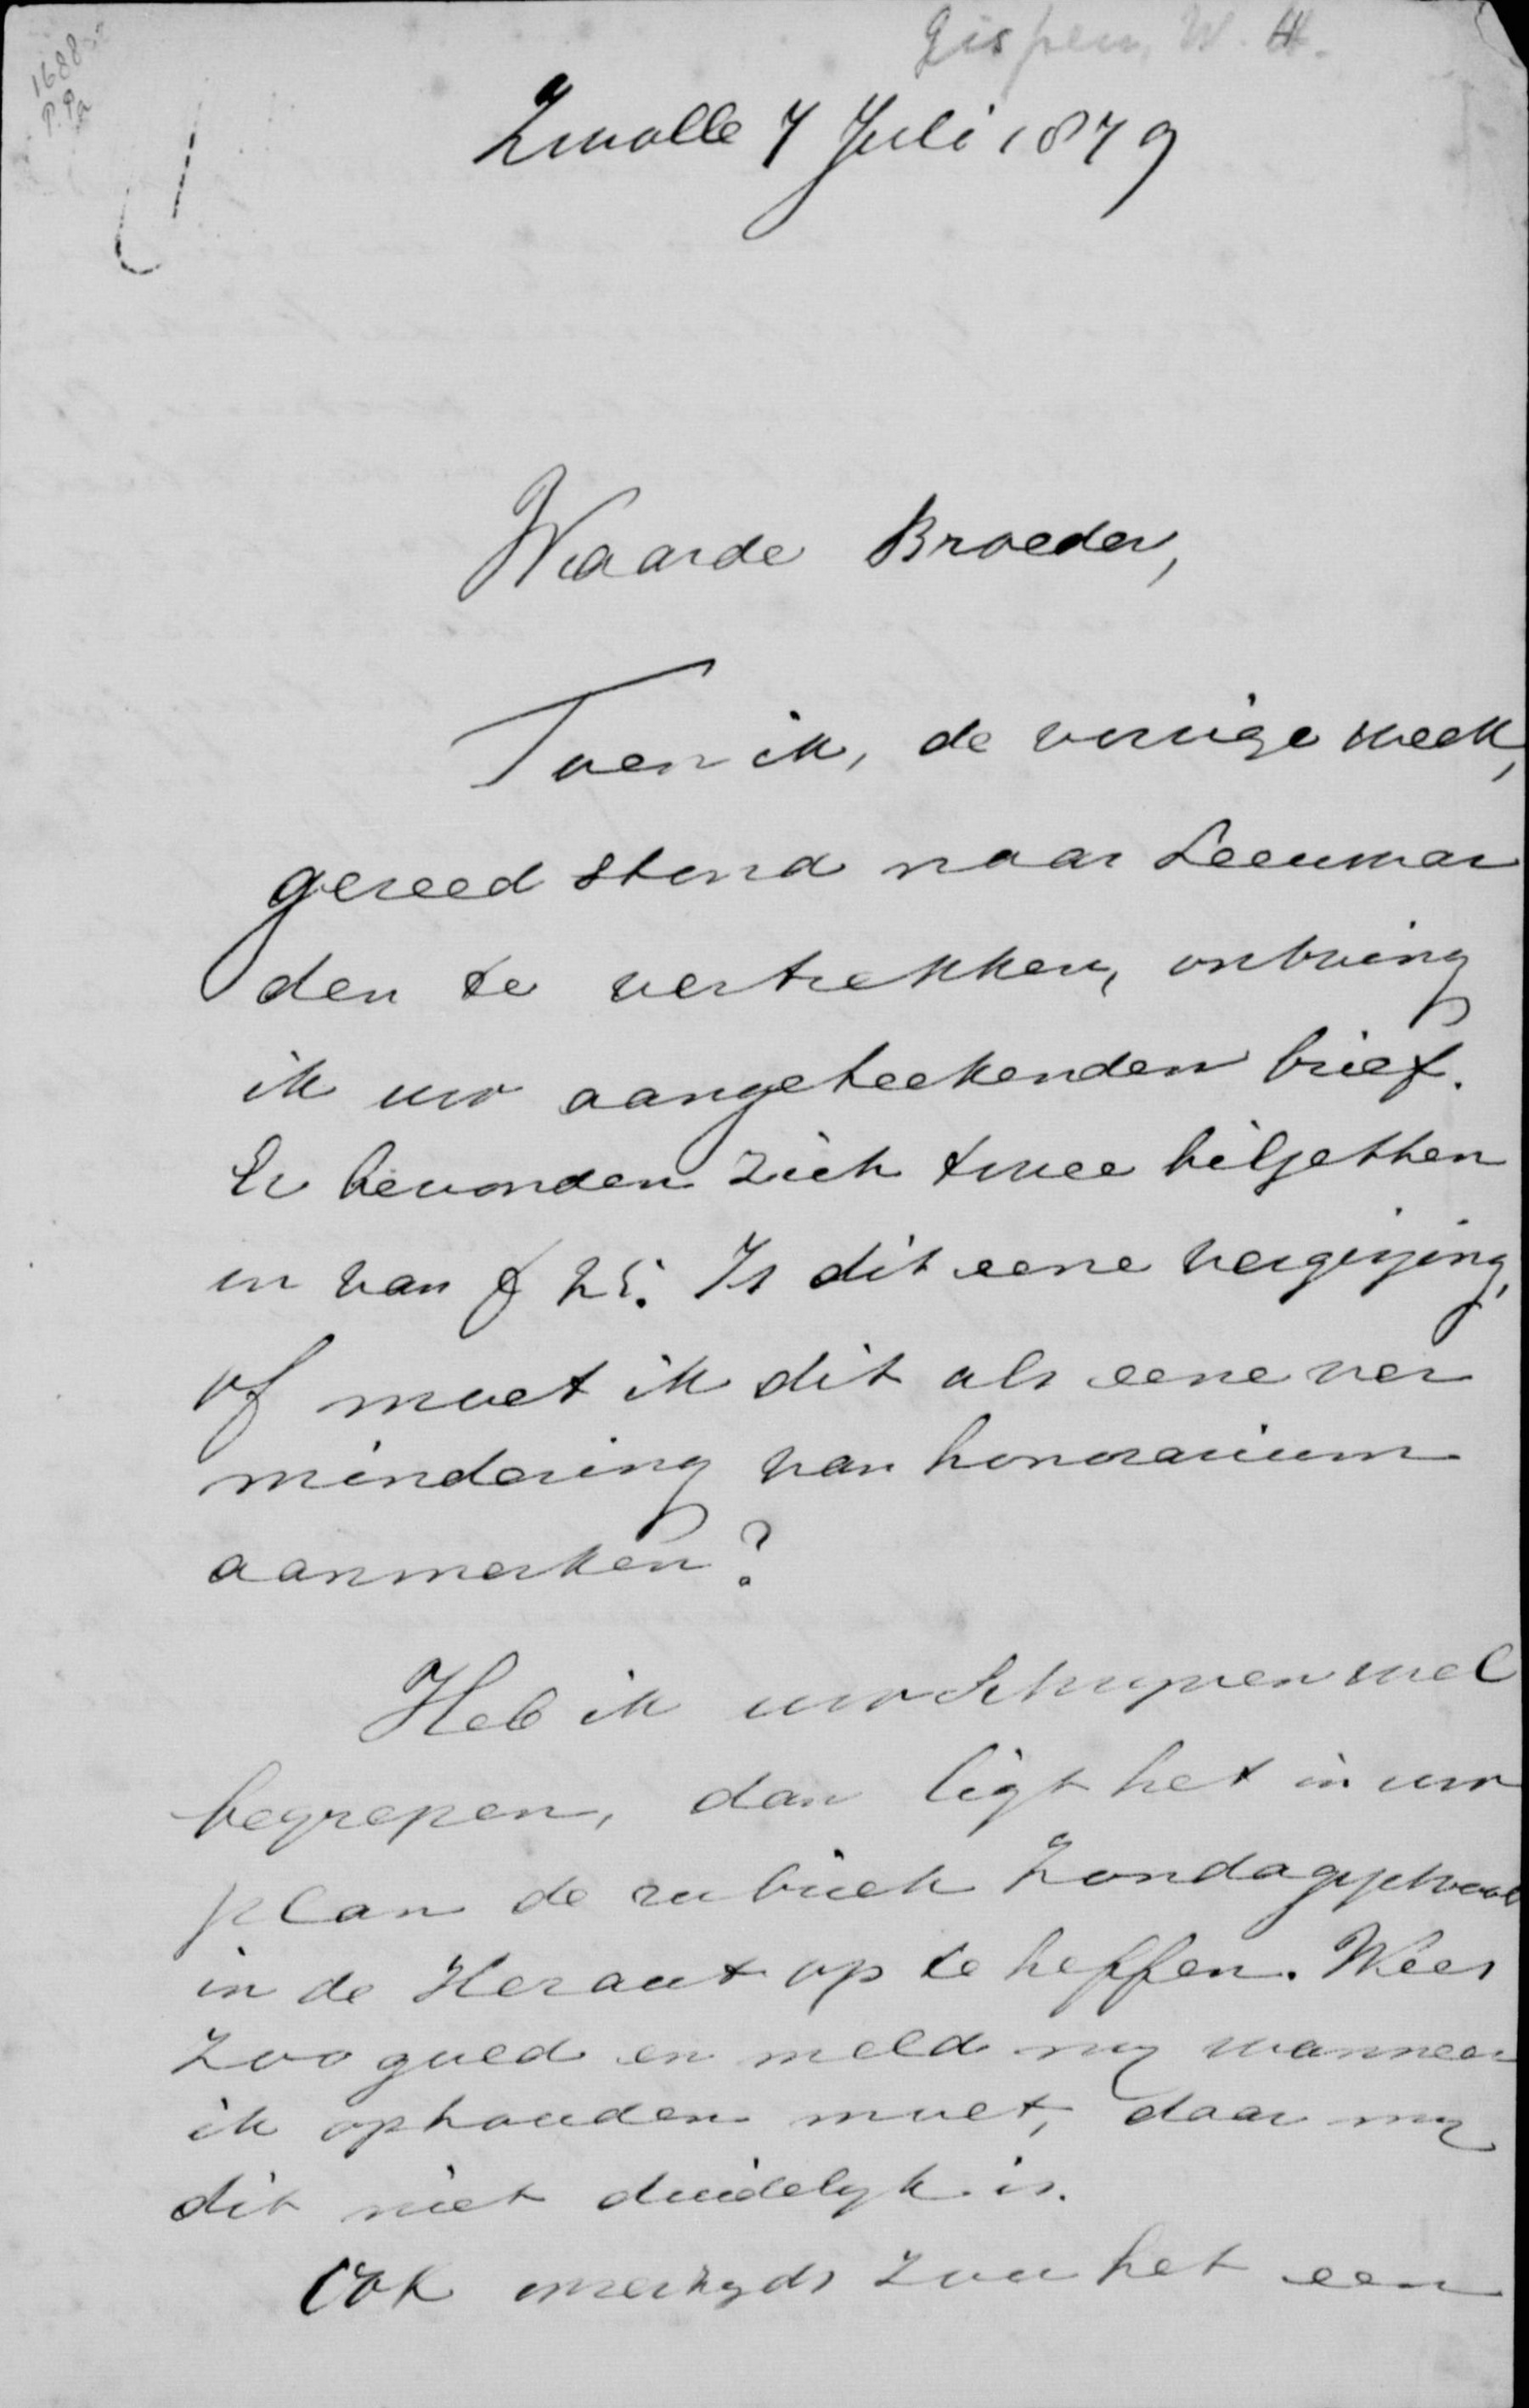 Gispen, W. H.
1688
P. Pa
Zwolle 7 Juli 1879
Waarde Broeder,
Toen ik, de vorige week,
gereed stond naar Leeuwar
den te vertrekken, ontving
ik uw aangeteekenden brief.
Er bevonden zich twee biljetten
in van f 25. Is dit eene vergissing,
of moet ik dit als eene ver
mindering van honorarium
aanmerken?
Heb ik uw schrijven wel
begrepen, dan ligt het in uw
plan de rubriek Zondagschool
in de Heraut op te heffen. Wees
zoo goed en meld mij wanneer
ik ophouden moet, daar mij
dit niet duidelijk is.
Ook mijnerzijds zou het een